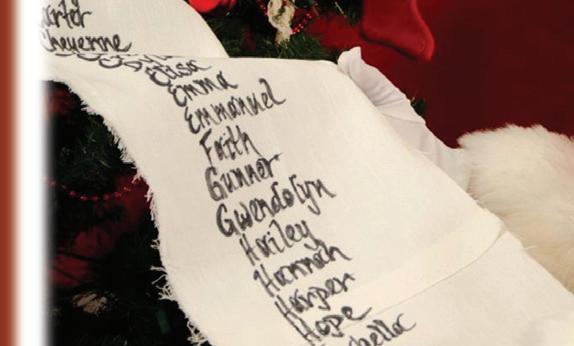 Carter
Cheyenne
Elisa
Emma
Emmanuel
Faith
Gunner
Gwendolyn
Hailey
Hannah
Harper
Hope